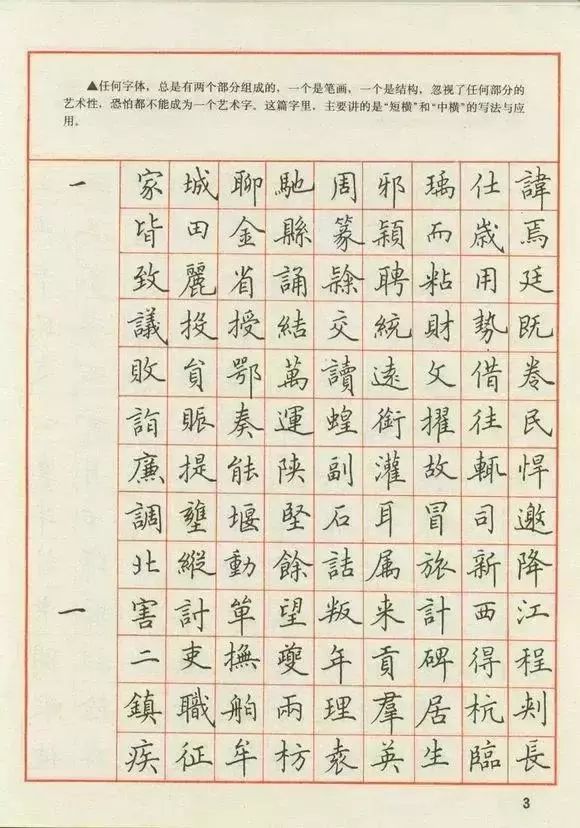 ▲任何字体，总是有两个部分组成的，一个是笔画，一个是结构，忽视了任何部分的
艺术性，恐怕都不能成为一个艺术字。这篇字里，主要讲的是“短横”和“中横”的写法与应
用。
一 家城聊馳周邪瑀仕諱
皆田金縣篆穎而歲焉
致麗省誦際聘粘用廷
議投授結交統財勢既
敗貟鄂萬讀遠文借卷
詣賑奏運蝗銜擢往民
廉提能陝副灌故輒悍
調壅堰堅石耳冒司邀
北縱動餘詰属旅新降
一 害討單望叛来計西江
二吏撫夔年貢碑得程
鎮職舶兩理羣居杭刺
疾征牟枋袁英生臨長
3